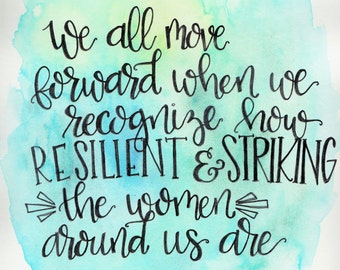 we all move
forward when we
recognize how
RESILIENT & STRIKING
the women
around us are